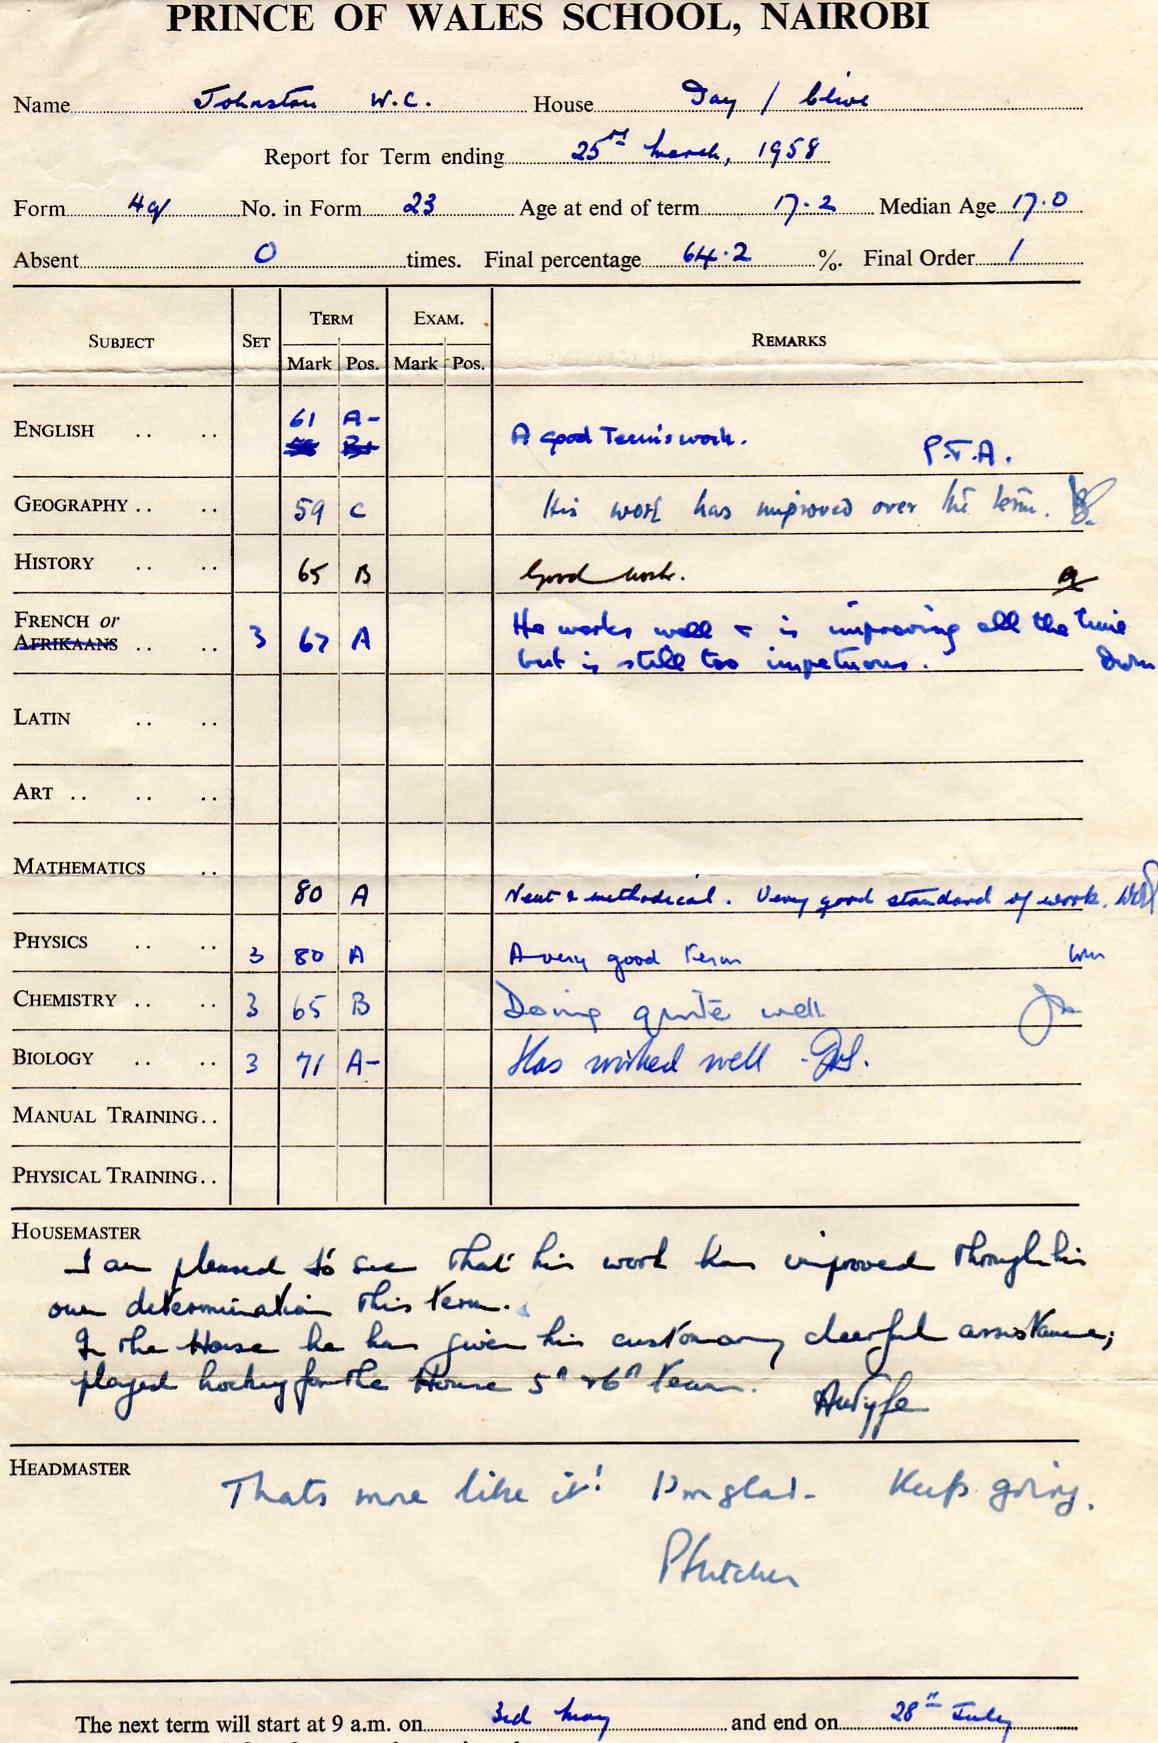 PRINCE OF WALES SCHOOL, NAIROBI
Name Johnston W.C. House Day / Clive
Report for Term ending 25th March, 1958
Form 4q No. in Form 23 Age at end of term 17.2 Median Age 17.0
Absent 0 times. Final percentage 64.2 %. Final Order 1
SUBJECT SET TERM EXAM. REMARKS
Mark Pos. Mark Pos.
ENGLISH .. .. 61 A- A good Term's work. P.T.A.
GEOGRAPHY .. .. 59 C His work has improved over the term.
HISTORY .. .. 65 B Good work.
FRENCH or
AFRIKAANS .. .. 3 67 A He works well & is improving all the time
but is still too impetuous.
LATIN .. ..
ART .. .. ..
MATHEMATICS .. 80 A Neat & methodical. Very good standard of work.
PHYSICS .. .. 3 80 A A very good term
CHEMISTRY .. .. 3 65 B Doing quite well
BIOLOGY .. .. 3 71 A- Has worked well
MANUAL TRAINING..
PHYSICAL TRAINING..
HOUSEMASTER
I am pleased to see that his work has improved through his
own determination this term.
In the House he has given his customary cheerful assistance;
played hockey for the House 5th & 6th team.
HEADMASTER
Thats more like it! I'm glad. Keep going.
PFletcher
The next term will start at 9 a.m. on 3rd May and end on 28th July